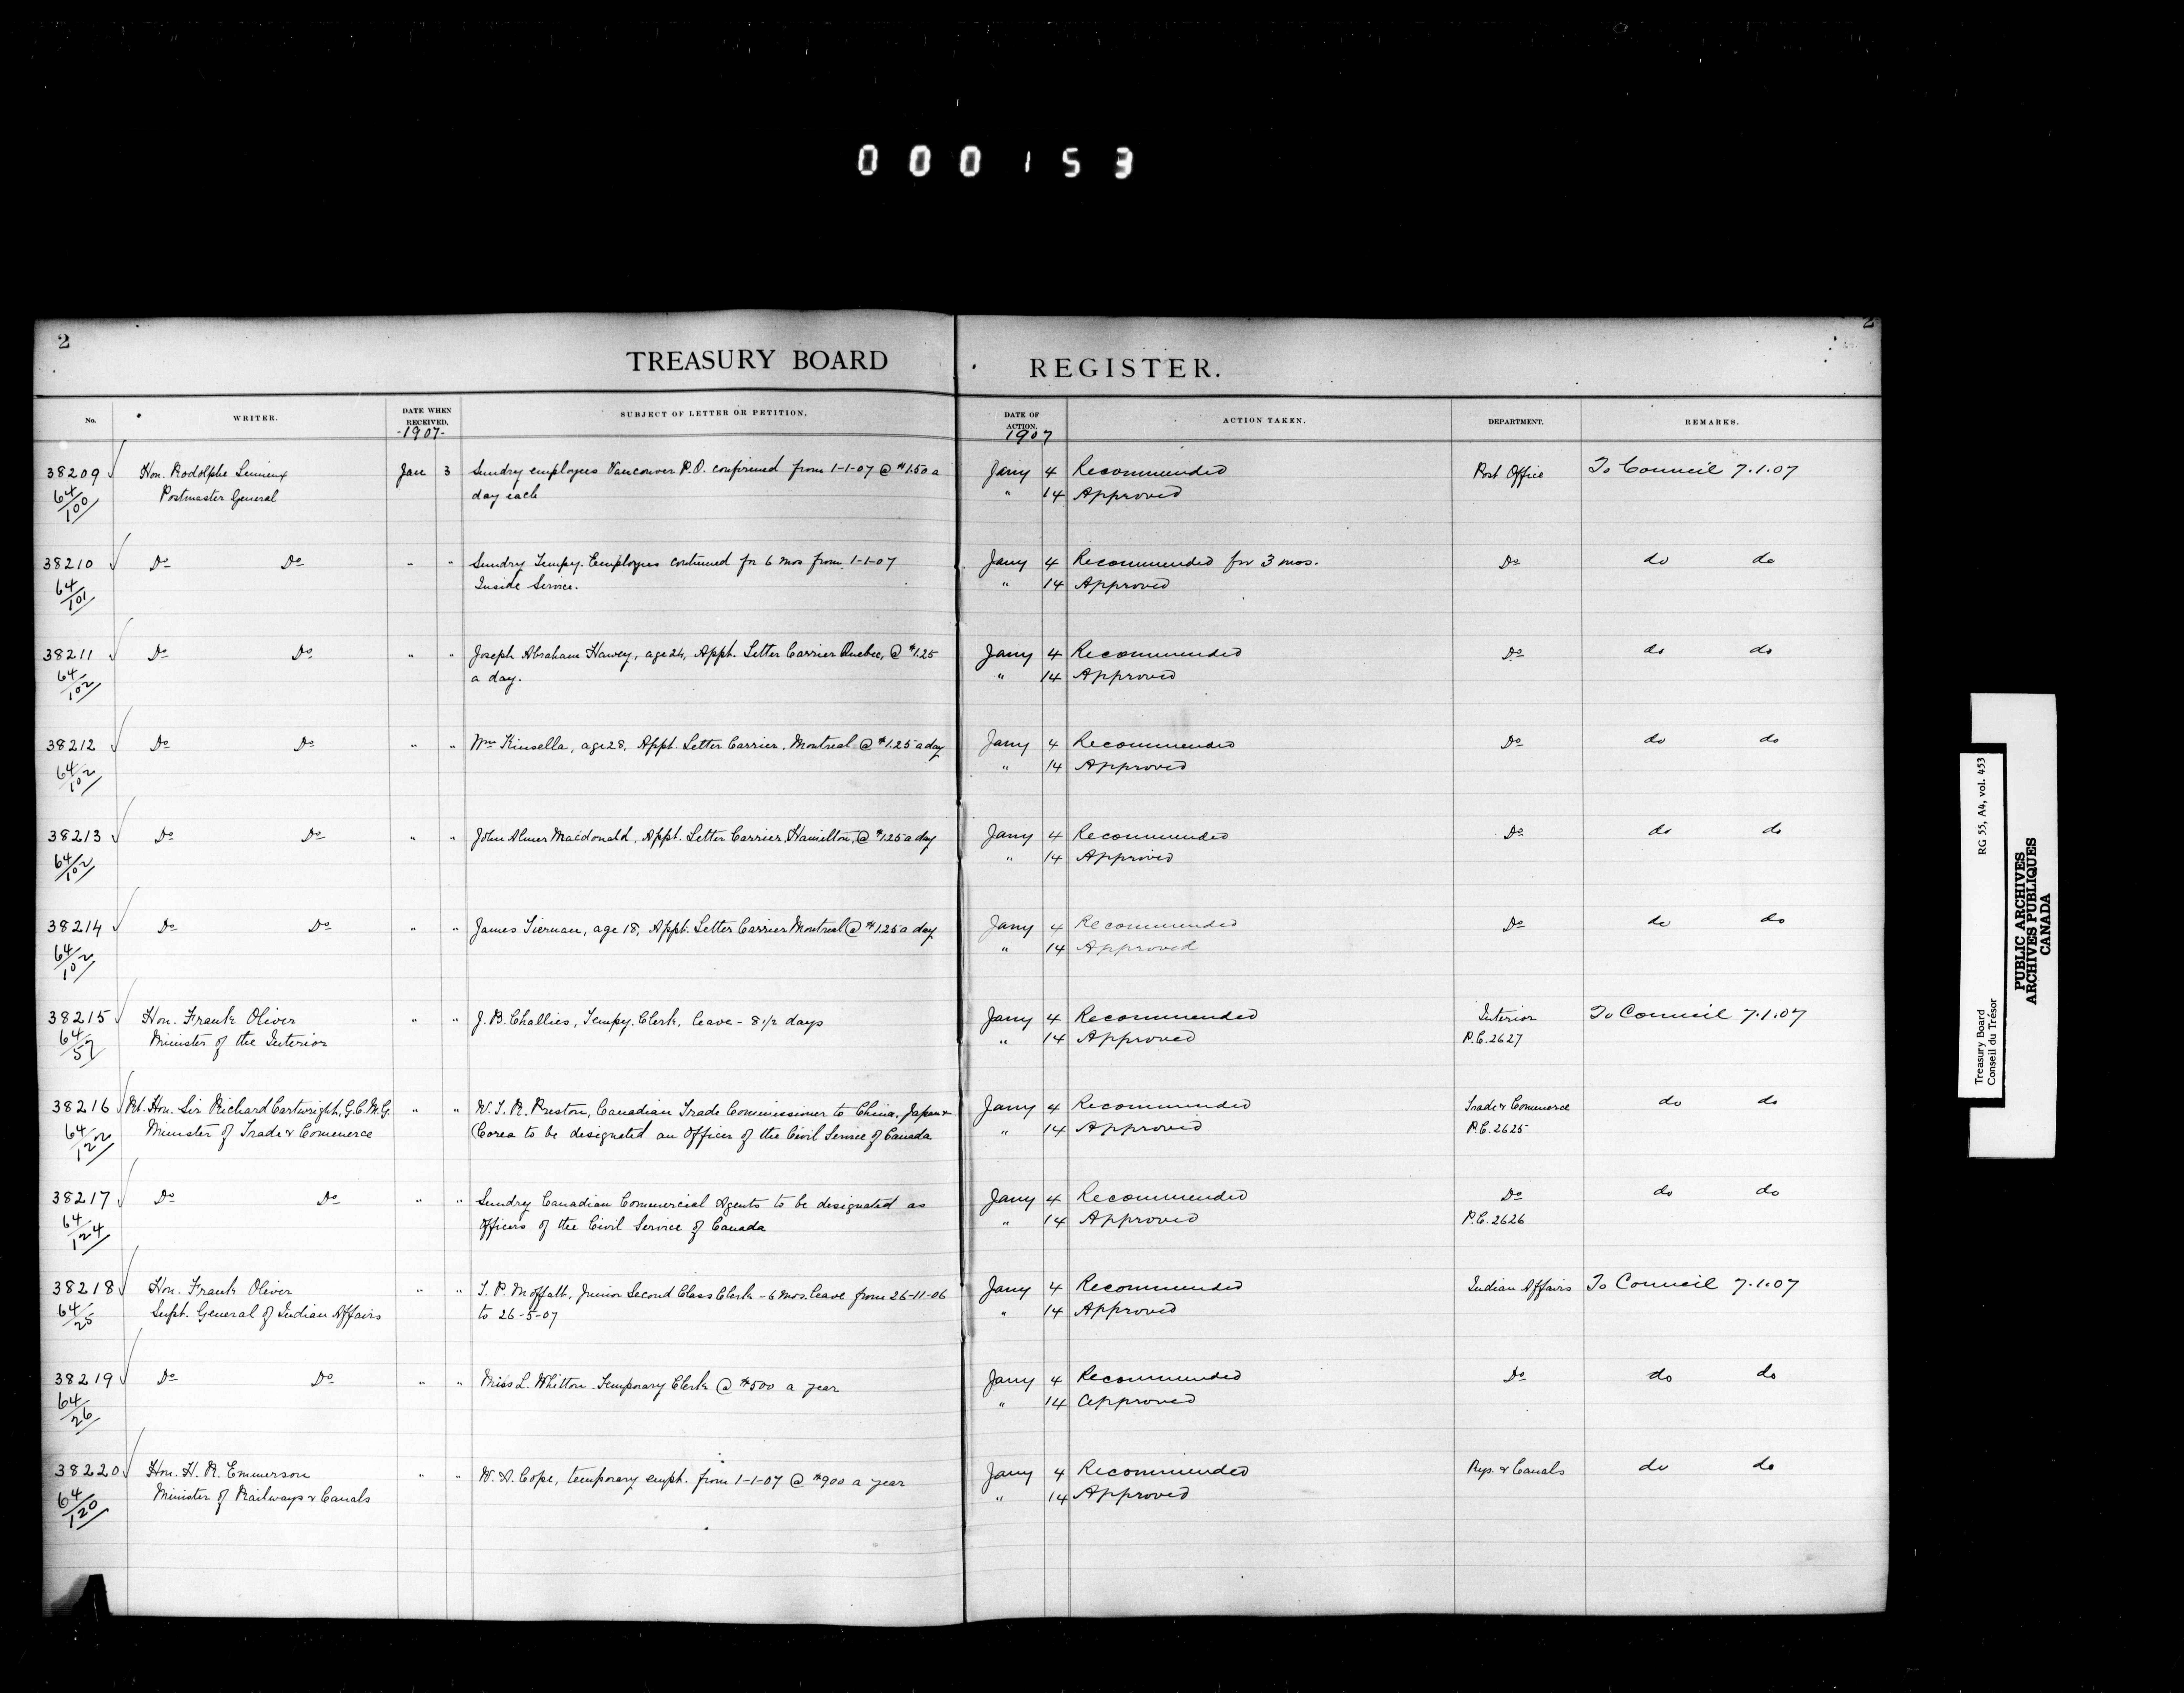 000153
2
2
TREASURY BOARD REGISTER.
No. WRITER. DATE WHEN RECEIVED. SUBJECT OF LETTER OR PETITION. DATE OF ACTION. ACTION TAKEN. DEPARTMENT. REMARKS.
-1907- 1907
38209 Hon. Rodolphe Lemieux Jan 3 Sundry employees Vancouver P.O. confirmed from 1-1-07 @ $1.50 a Jany 4 Recommended Post Office To Council 7.1.07
64/100 Postmaster General day each " 14 Approved
38210 Do Do " " Sundry Tempy. Employees continued for 6 mos from 1-1-07 Jany 4 Recommended for 3 mos. Do do do
64/101 Inside Service. " 14 Approved
38211 Do Do " " Joseph Abraham Hawey, age 24, Appt. Letter Carrier Quebec, @ $1.25 Jany 4 Recommended Do do do
64/102 a day. " 14 Approved
38212 Do Do " " Wm Kinsella, age 28, Appt. Letter Carrier, Montreal @ $1.25 a day Jany 4 Recommended Do do do
64/102 " 14 Approved
38213 Do Do " " John Almer Macdonald, Appt. Letter Carrier, Hamilton, @ $1.25 a day Jany 4 Recommended Do do do
64/102 " 14 Approved
38214 Do Do " " James Tiernan, age 18, Appt. Letter Carrier Montreal @ $1.25 a day Jany 4 Recommended Do do do
64/102 " 14 Approved
38215 Hon. Frank Oliver " " J.B. Challies, Tempy. Clerk, leave - 8 1/2 days Jany 4 Recommended Interior To Council 7.1.07
64/57 Minister of the Interior " 14 Approved P.C. 2627
38216 Rt. Hon. Sir Richard Cartwright, G.C.M.G. " " W.T.R. Preston, Canadian Trade Commissioner to China, Japan & Jany 4 Recommended Trade & Commerce do do
64/122 Minister of Trade & Commerce Corea to be designated an Officer of the Civil Service of Canada " 14 Approved P.C. 2625
38217 Do Do " " Sundry Canadian Commercial Agents to be designated as Jany 4 Recommended Do do do
64/124 Officers of the Civil Service of Canada " 14 Approved P.C. 2626
38218 Hon. Frank Oliver " " T.P. Moffatt, Junior Second Class Clerk - 6 mos. leave from 26-11-06 Jany 4 Recommended Indian Affairs To Council 7.1.07
64/25 Supt. General of Indian Affairs to 26-5-07 " 14 Approved
38219 Do Do " " Miss L. Whitton. Temporary Clerk @ $500 a year Jany 4 Recommended Do do do
64/26 " 14 Approved
38220 Hon. H.R. Emmerson " " W.A. Cope, temporary empt. from 1-1-07 @ $900 a year Jany 4 Recommended Rys. & Canals do do
64/120 Minister of Railways & Canals " 14 Approved
Treasury Board RG 55, A4, vol. 453
Conseil du Trésor
PUBLIC ARCHIVES
ARCHIVES PUBLIQUES
CANADA